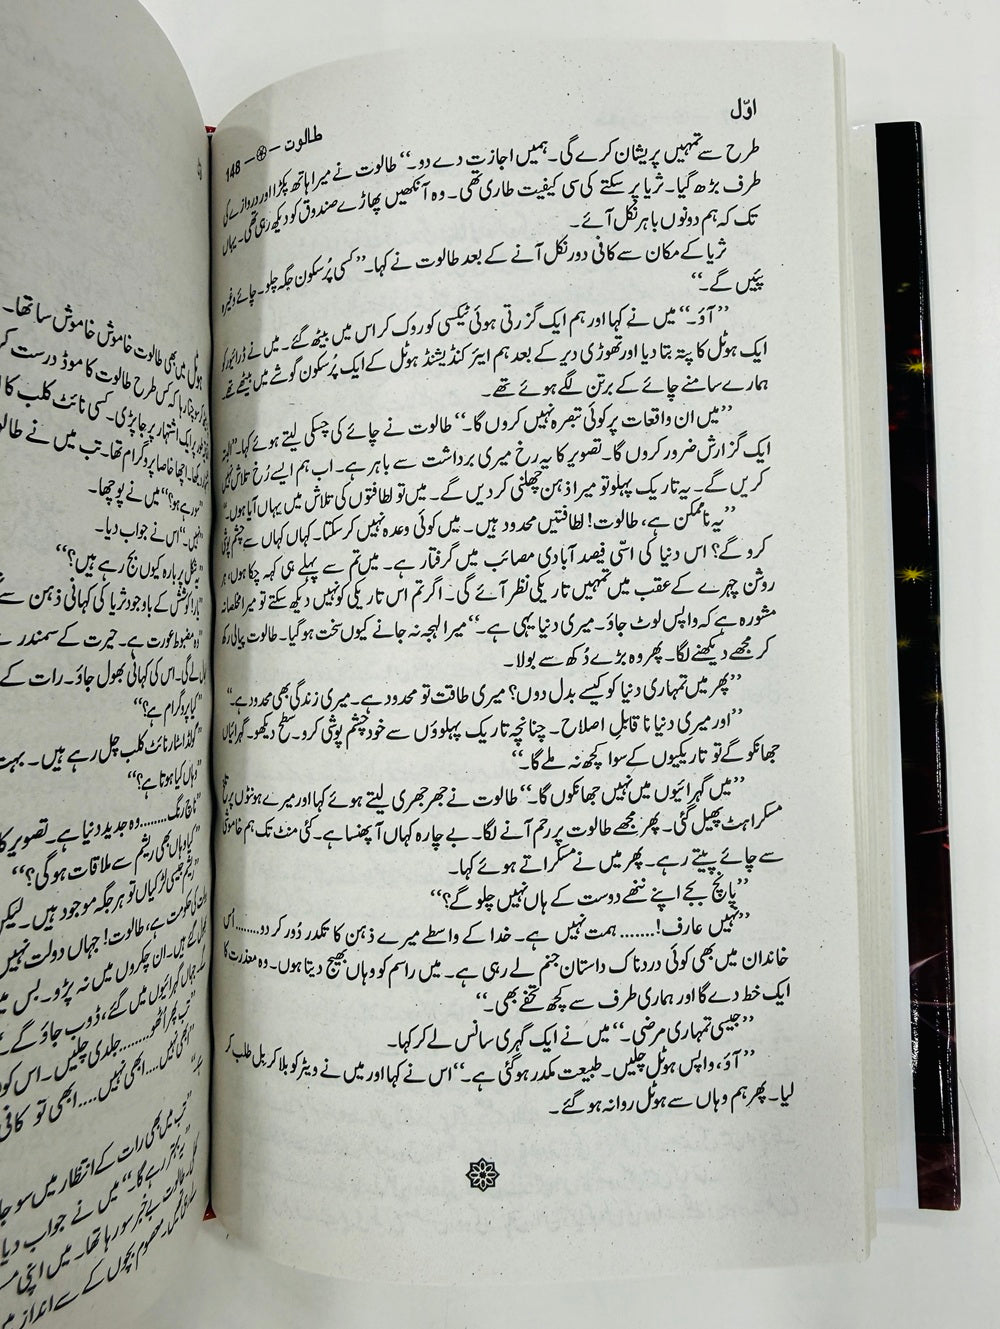 اوّل
طالوت — 148
طرح سے تمہیں پریشان کرے گی۔ ہمیں اجازت دے دو۔‘‘ طالوت نے میرا ہاتھ پکڑا اور دروازے کی
طرف بڑھ گیا۔ ثریا پر سکتے کی سی کیفیت طاری تھی۔ وہ آنکھیں پھاڑے صندوق کو دیکھ رہی تھی۔ یہاں
تک کہ ہم دونوں باہر نکل آئے۔
ثریا کے مکان سے کافی دور نکل آنے کے بعد طالوت نے کہا۔ ’’کسی پُرسکون جگہ چلو۔ چائے وغیرہ
پئیں گے۔‘‘
’’آؤ۔‘‘ میں نے کہا اور ہم ایک گزرتی ہوئی ٹیکسی کو روک کر اس میں بیٹھ گئے۔ میں نے ڈرائیور کو
ایک ہوٹل کا پتہ بتا دیا اور تھوڑی دیر کے بعد ہم ایئر کنڈیشنڈ ہوٹل کے ایک پُرسکون گوشے میں بیٹھے تھے
ہمارے سامنے چائے کے برتن لگے ہوئے تھے۔
’’میں ان واقعات پر کوئی تبصرہ نہیں کروں گا۔‘‘ طالوت نے چائے کی چسکی لیتے ہوئے کہا۔ ’’البتہ
ایک گزارش ضرور کروں گا۔ تصویر کا یہ رخ میری برداشت سے باہر ہے۔ اب ہم ایسے رُخ تلاش نہیں
کریں گے۔ یہ تاریک پہلو تو میرا ذہن چھلنی کر دیں گے۔ میں تو لطافتوں کی تلاش میں یہاں آیا ہوں۔‘‘
’’یہ ناممکن ہے، طالوت! لطافتیں محدود ہیں۔ میں کوئی وعدہ نہیں کر سکتا۔ کہاں کہاں سے چشم پوشی
کرو گے؟ اس دنیا کی اسّی فیصد آبادی مصائب میں گرفتار ہے۔ میں تم سے پہلے ہی کہہ چکا ہوں، ہر
روشن چہرے کے عقب میں تمہیں تاریکی نظر آئے گی۔ اگر تم اس تاریکی کو نہیں دیکھ سکتے تو میرا مخلصانہ
مشورہ ہے کہ واپس لوٹ جاؤ۔ میری دنیا یہی ہے۔‘‘ میرا لہجہ نہ جانے کیوں سخت ہو گیا۔ طالوت پیالی رکھ
کر مجھے دیکھنے لگا۔ پھر وہ بڑے دُکھ سے بولا۔
’’پھر میں تمہاری دنیا کو کیسے بدل دوں؟ میری طاقت تو محدود ہے۔ میری زندگی بھی محدود ہے۔‘‘
’’اور میری دنیا ناقابلِ اصلاح۔ چنانچہ تاریک پہلوؤں سے خود چشم پوشی کرو۔ سطح دیکھو۔ گہرائیاں
جھانکو گے تو تاریکیوں کے سوا کچھ نہ ملے گا۔‘‘
’’میں گہرائیوں میں نہیں جھانکوں گا۔‘‘ طالوت نے جھرجھری لیتے ہوئے کہا اور میرے ہونٹوں پر
مسکراہٹ پھیل گئی۔ پھر مجھے طالوت پر رحم آنے لگا۔ بے چارہ کہاں آ پھنسا ہے۔ کئی منٹ تک ہم خاموشی
سے چائے پیتے رہے۔ پھر میں نے مسکراتے ہوئے کہا۔
’’پانچ بجے اپنے ننھے دوست کے ہاں نہیں چلو گے؟‘‘
’’نہیں عارف!....... ہمت نہیں ہے۔ خدا کے واسطے میرے ذہن کا تکدر دُور کر دو....... اُس
خاندان میں بھی کوئی دردناک داستان جنم لے رہی ہے۔ میں راسم کو وہاں بھیج دیتا ہوں۔ وہ معذرت کا
ایک خط دے گا اور ہماری طرف سے کچھ تحفے بھی۔‘‘
’’جیسی تمہاری مرضی۔‘‘ میں نے ایک گہری سانس لے کر کہا۔
’’آؤ، واپس ہوٹل چلیں۔ طبیعت مکدر ہو گئی ہے۔‘‘ اس نے کہا اور میں نے ویٹر کو بلا کر بل طلب کر
لیا۔ پھر ہم وہاں سے ہوٹل روانہ ہو گئے۔
ہوٹل میں بھی طالوت خاموش خاموش سا تھا۔
سوچتا رہا کہ کس طرح طالوت کا موڈ درست
ایک اشتہار پر جا پڑی۔ کسی نائٹ کلب کا
اچھا خاصا پروگرام تھا۔ تب میں نے
میں نے پوچھا۔
اس نے جواب دیا۔
شکل پر بارہ کیوں بج رہے ہیں؟‘‘
کوشش کے باوجود ثریا کی کہانی ذہن سے
’’وہ مضبوط عورت ہے۔ حیرت کے سمندر سے
لے گی۔ اس کی کہانی بھول جاؤ۔ رات کے
’’کیا پروگرام ہے؟‘‘
’’گولڈ اسٹار نائٹ کلب چل رہے ہیں۔ بہت
’’وہاں کیا ہوتا ہے؟‘‘
’’ناچ رنگ........ وہ جدید دنیا ہے۔ تصویر کا
’’کیا وہاں بھی ریشم سے ملاقات ہو گی؟‘‘
’’ریشم جیسی لڑکیاں تو ہر جگہ موجود ہیں۔ لیکن
کی حکومت ہے، طالوت! جہاں دولت نہیں
ہیں۔ ان چکروں میں نہ پڑو۔ بس
جہاں گہرائیوں میں گئے، ڈوب جاؤ گے۔
’’تب پھر اُٹھو........ جلدی چلیں۔ اس
’’ابھی نہیں.... ابھی نہیں.... ابھی تو کافی
’’تب میں بھی رات کے انتظار میں سو
’’یہ بہتر رہے گا۔‘‘ میں نے جواب دیا
طالوت بے خبر سو رہا تھا۔ میں اپنی
معصوم بچوں کے سے انداز میں